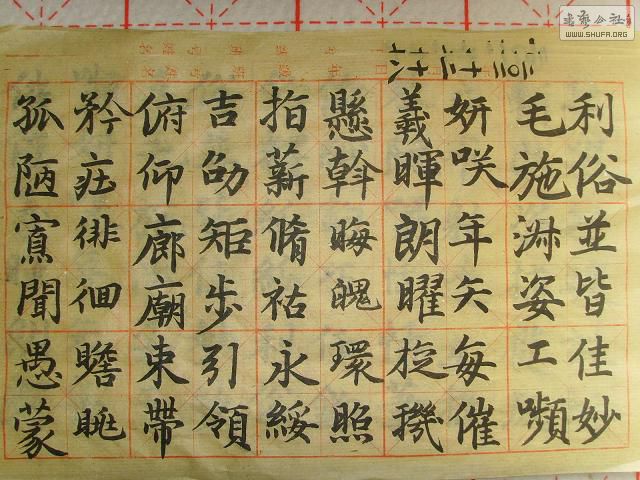 书艺公社
WWW.SHUFA.ORG
利俗並皆佳妙
毛施淑姿工嚬
妍咲年矢每催
羲暉朗曜旋璣
懸斡晦魄環照
指薪脩祜永綏
吉劭矩步引領
俯仰廊廟束帶
矜庄徘徊瞻眺
孤陋寡聞愚蒙